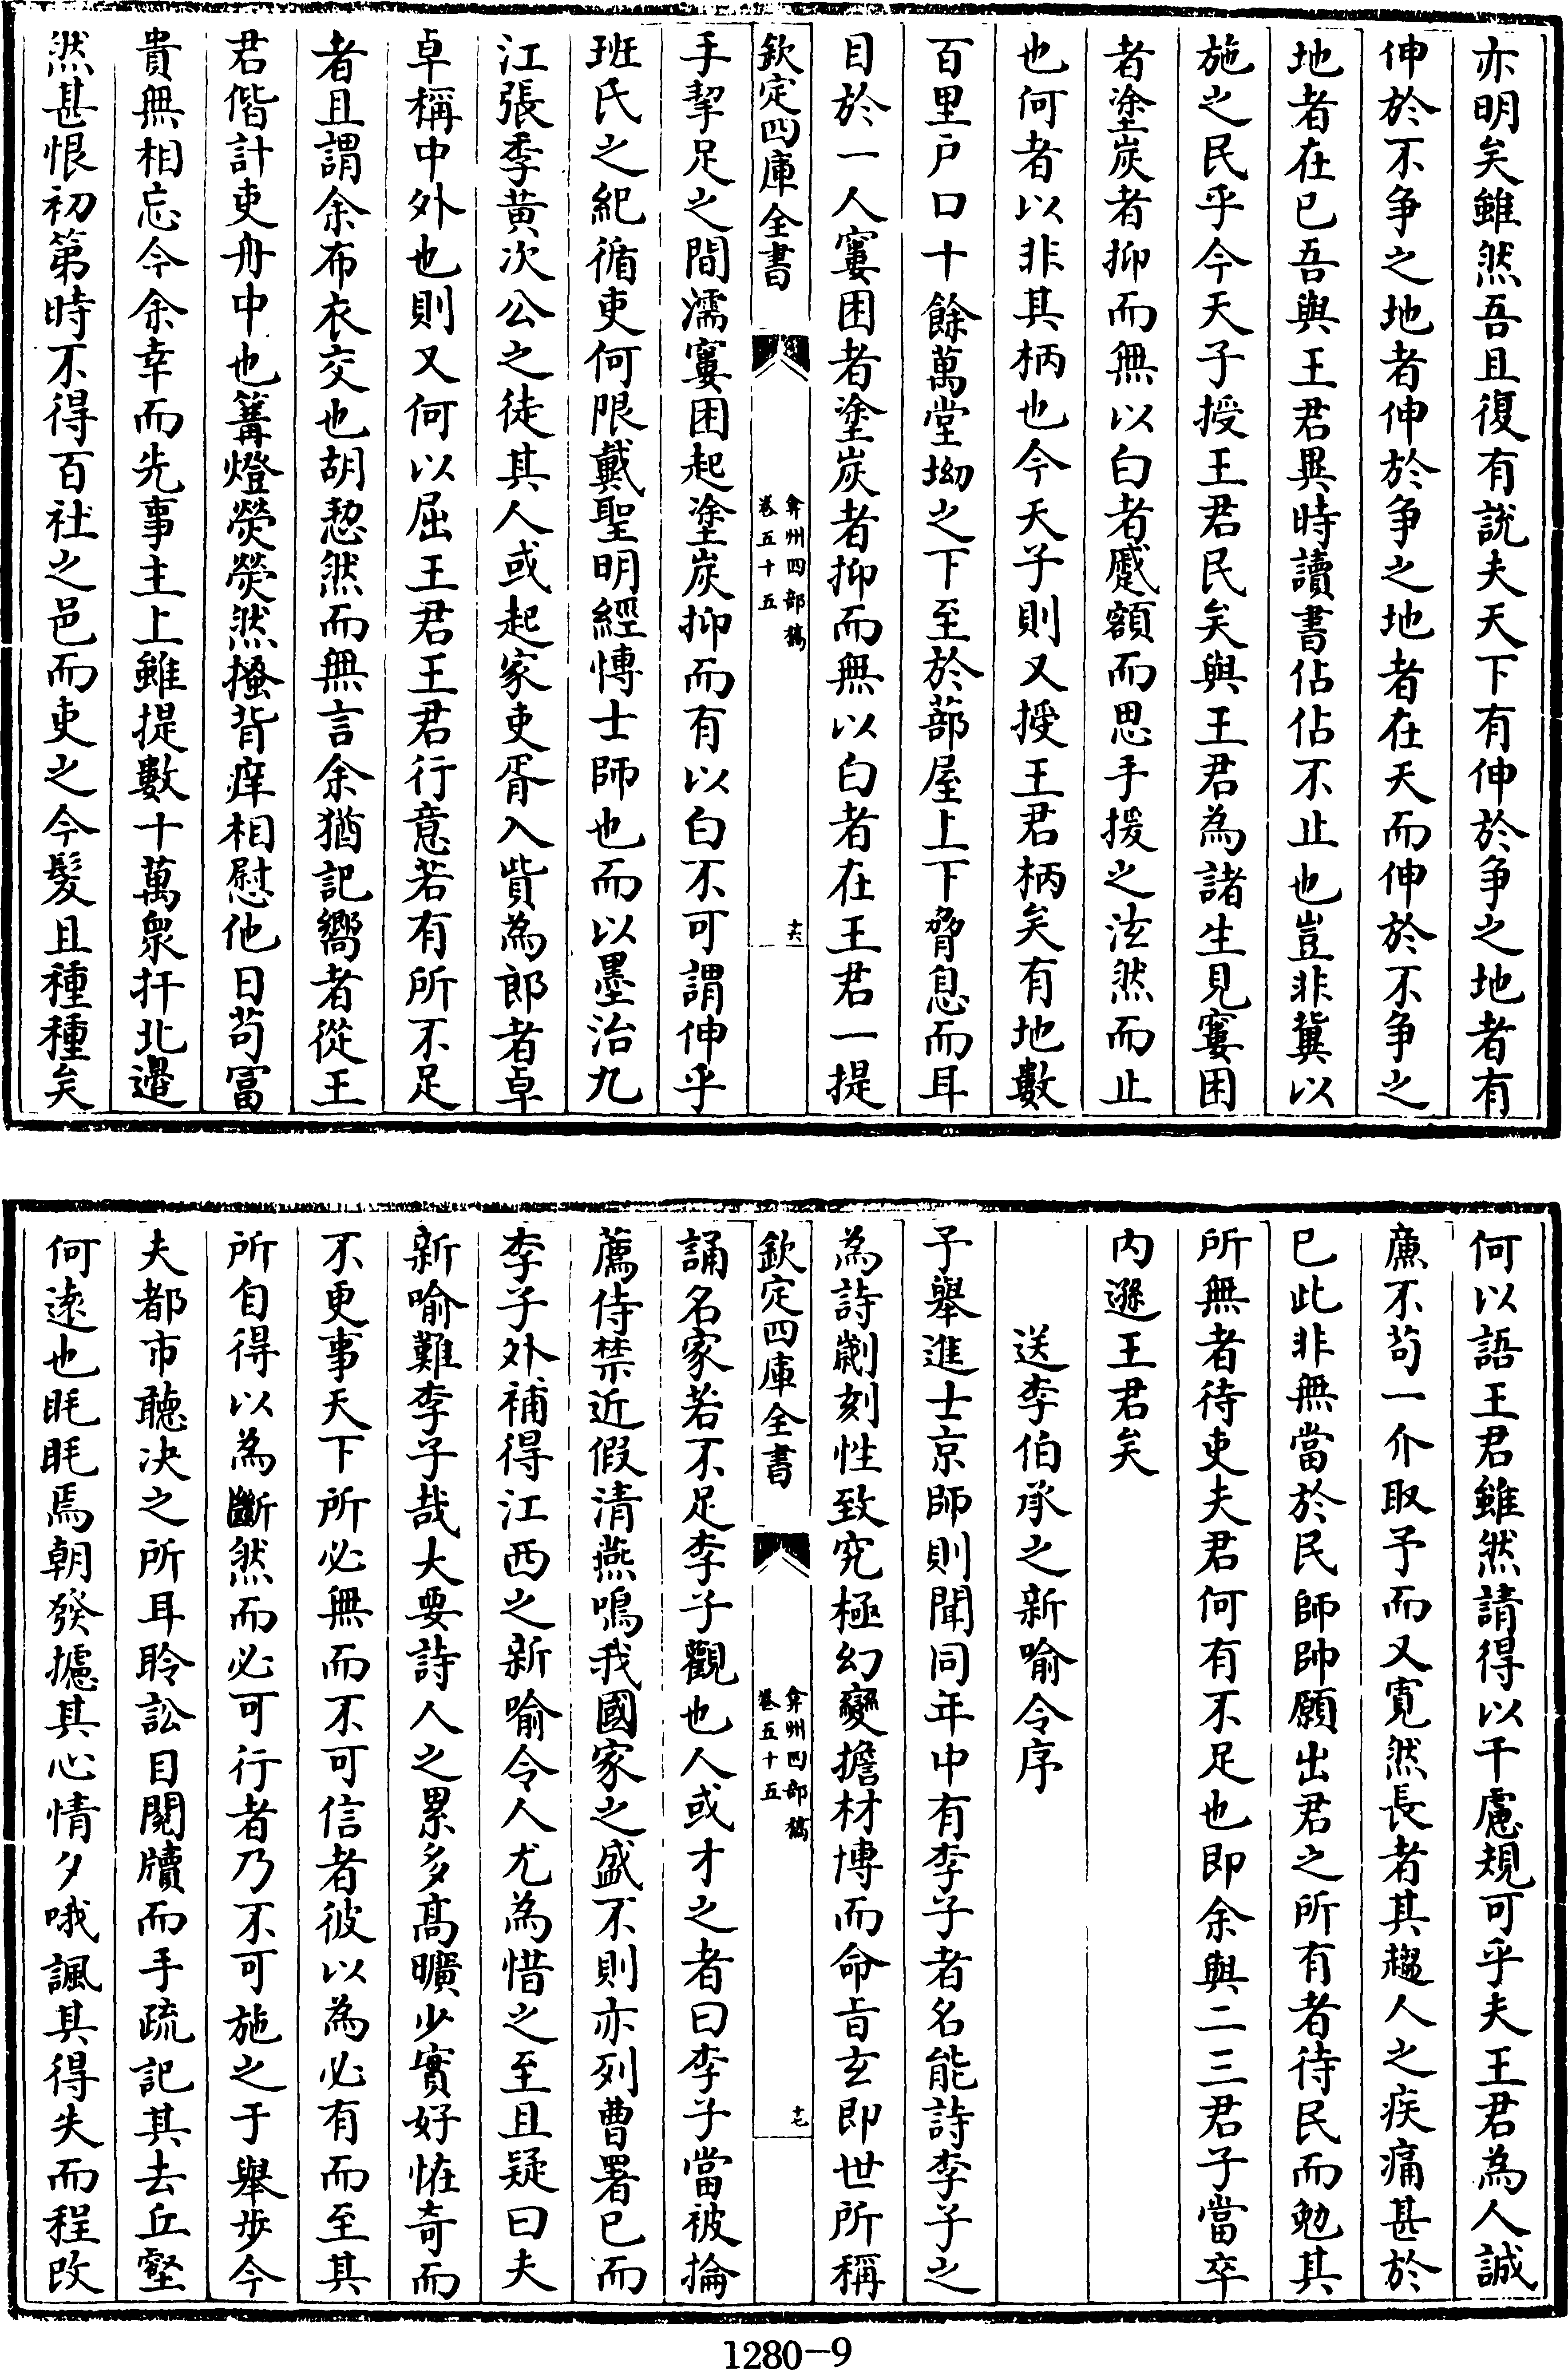 亦明矣雖然吾且復有說夫天下有伸於爭之地者有
伸於不爭之地者伸於爭之地者在天而伸於不爭之
地者在已吾與王君異時讀書佔佔不止也豈非冀以
施之民乎今天子授王君民矣與王君為諸生見窶困
者塗炭者抑而無以白者蹙額而思手援之泫然而止
也何者以非其柄也今天子則又授王君柄矣有地數
百里戶口十餘萬堂坳之下至於蔀屋上下脅息而耳
目於一人窶困者塗炭者抑而無以白者在王君一提
欽定四庫全書
弇州四部稿
卷五十五
十六
手挈足之間濡窶困起塗炭抑而有以白不可謂伸乎
班氏之紀循吏何限戴聖明經博士師也而以墨治九
江張季黃次公之徒其人或起家吏胥入貲為郎者卓
卓稱中外也則又何以屈王君王君行意若有所不足
者且謂余布衣交也胡恝然而無言余猶記嚮者從王
君偕計吏舟中也篝燈熒熒然搔背痒相慰他日苟富
貴無相忘今余幸而先事主上雖提數十萬衆扞北邊
然甚恨初第時不得百社之邑而吏之今髮且種種矣
何以語王君雖然請得以千慮規可乎夫王君為人誠
廉不苟一介取予而又寛然長者其趨人之疾痛甚於
已此非無當於民師帥願出君之所有者待民而勉其
所無者待吏夫君何有不足也即余與二三君子當卒
内遜王君矣
送李伯承之新喻令序
子舉進士京師則聞同年中有李子者名能詩李子之
為詩劌刻性致究極幻變擔材博而命㫖玄即世所稱
欽定四庫全書
弇州四部稿
卷五十五
十七
誦名家若不足李子觀也人或才之者曰李子當被掄
薦侍禁近假清燕鳴我國家之盛不則亦列曹署已而
李子外補得江西之新喻令人尤為惜之至且疑曰夫
新喻難李子哉大要詩人之累多髙曠少實好怪奇而
不更事天下所必無而不可信者彼以為必有而至其
所自得以為斷然而必可行者乃不可施之于舉步今
夫都市聽决之所耳聆訟目閱牘而手疏記其去丘壑
何逺也眊眊焉朝發攄其心情夕哦諷其得失而程改
1280-9